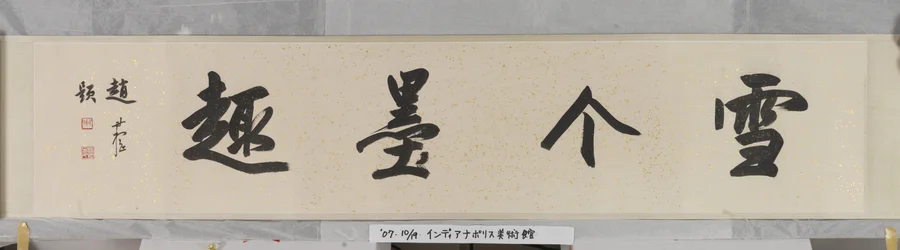 雪个墨趣
趙
題
'07-10/19 インディアナポリス美術館